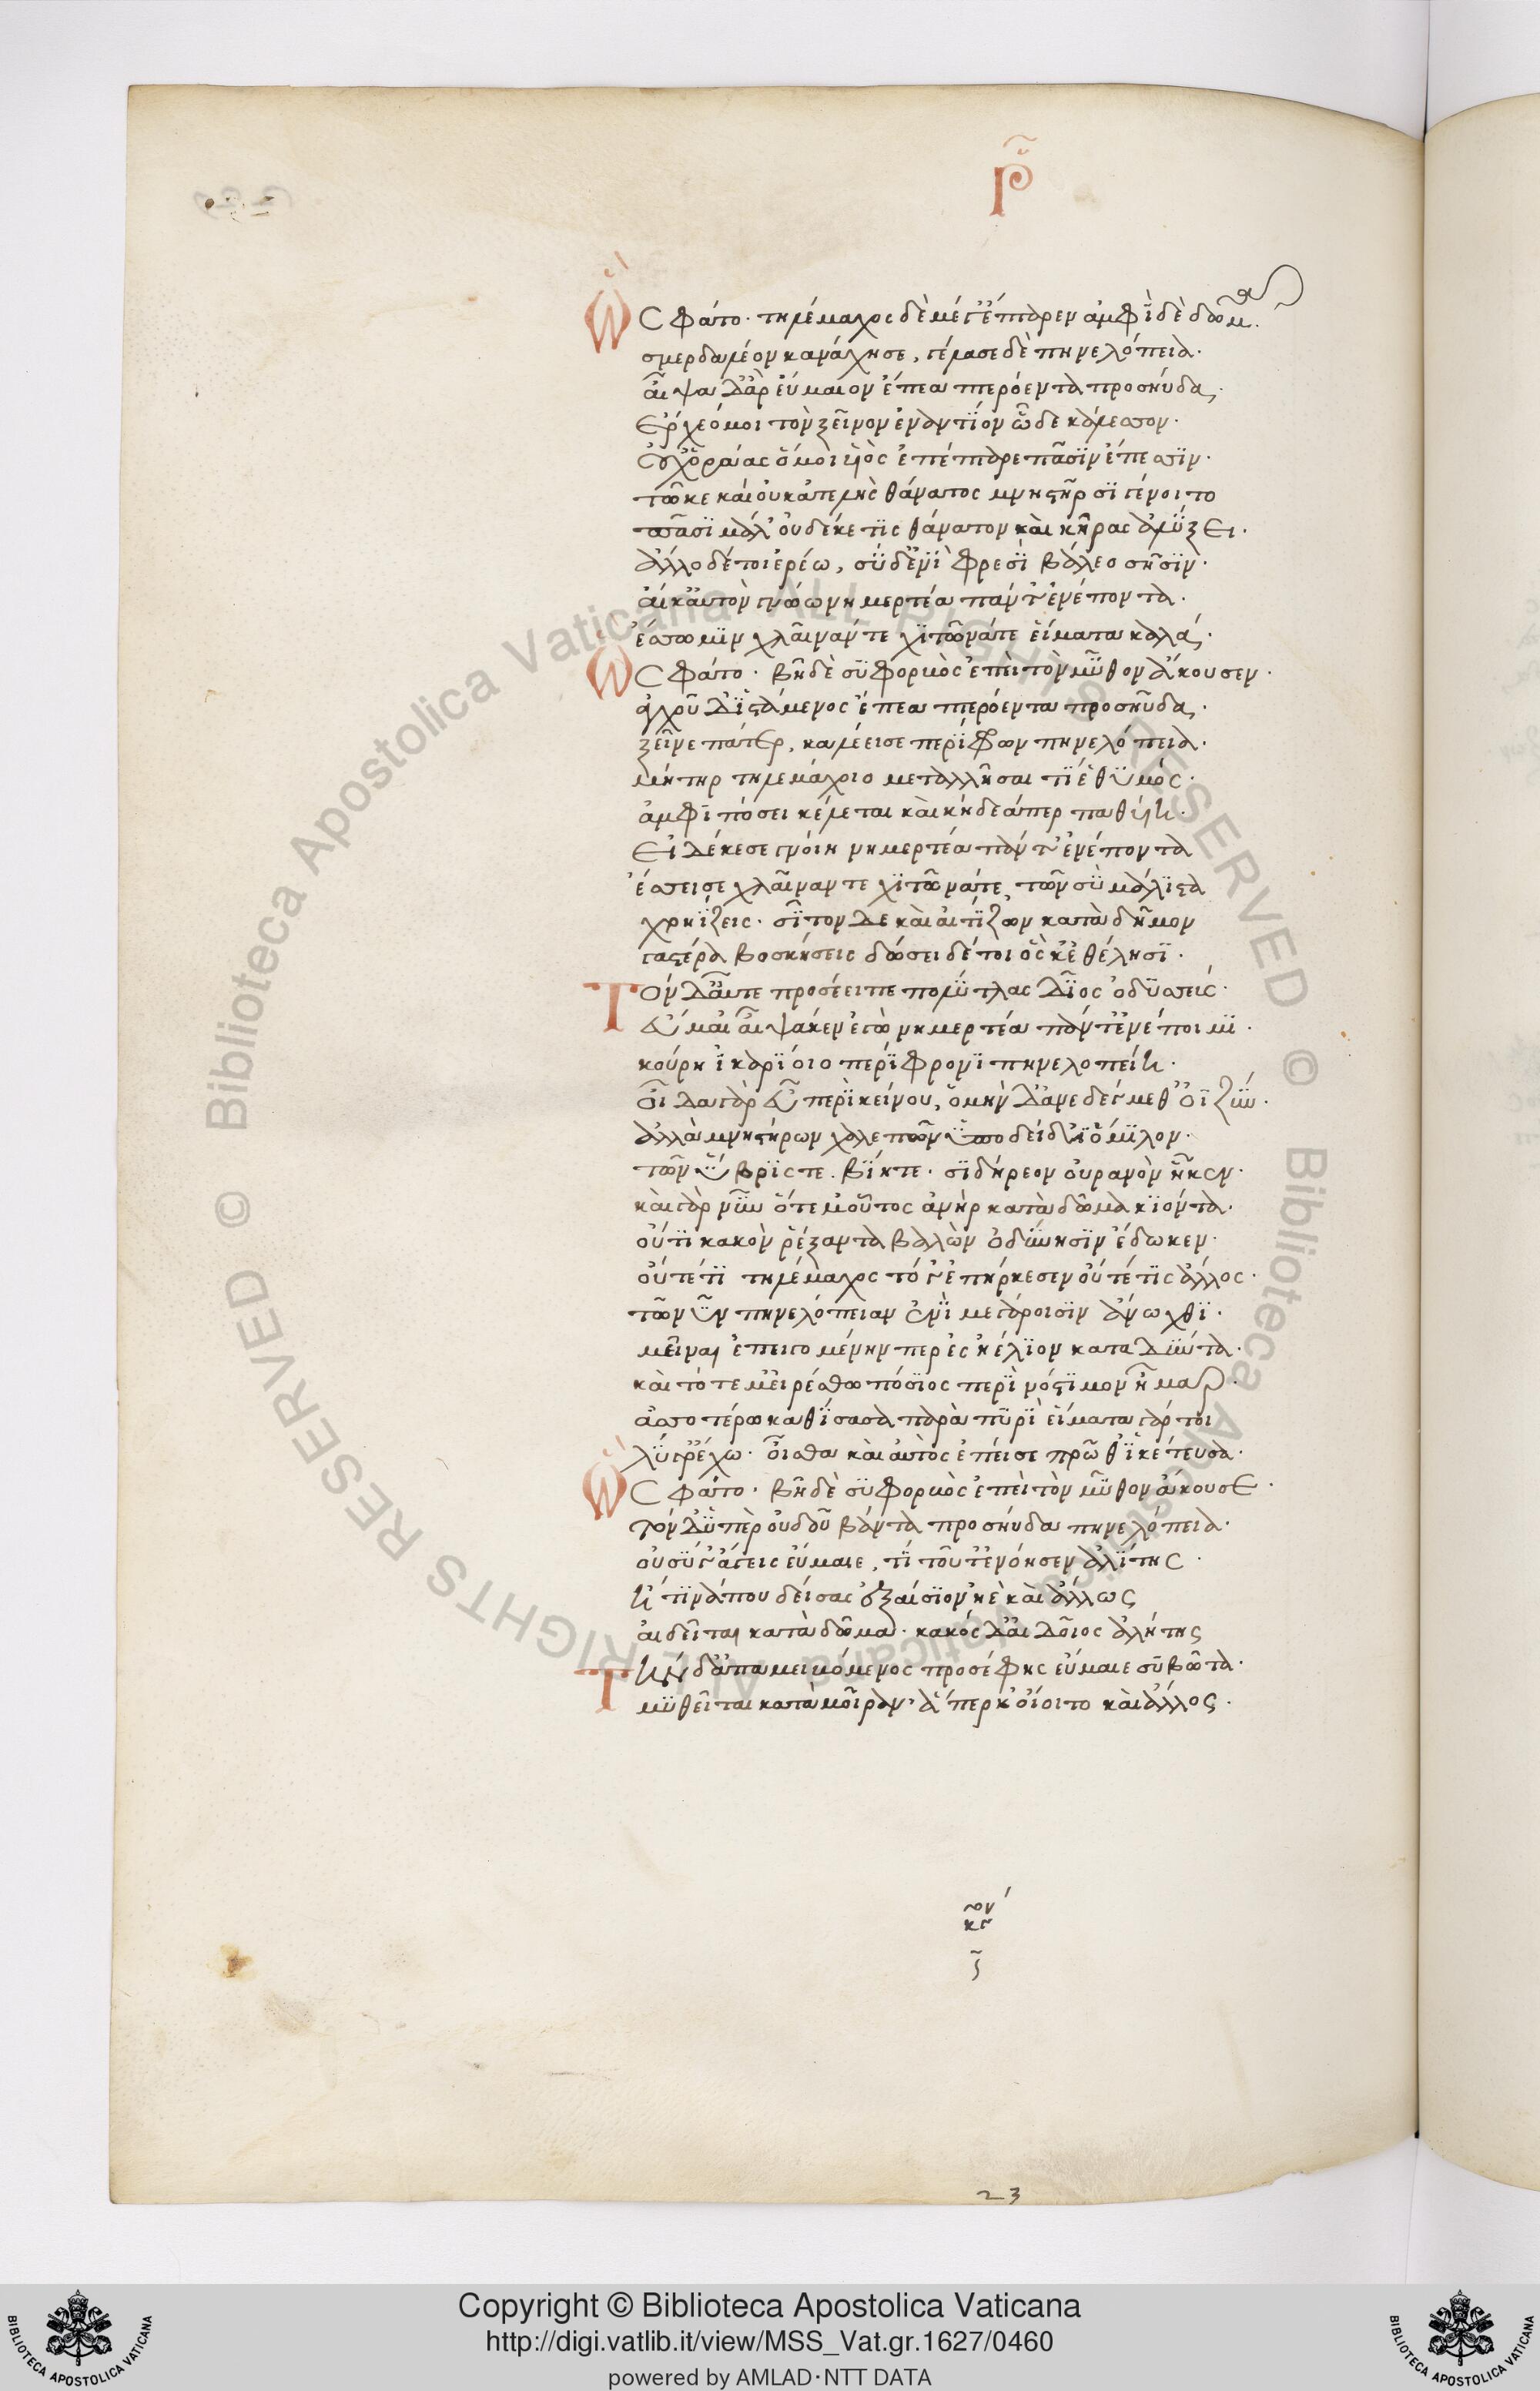 ρ
Ὣς φάτο· τηλέμαχος δὲ μέγ' ἔπταρεν ἀμφὶ δὲ δῶμα·
σμερδαλέον κανάχησε, γέλασε δὲ πηνελόπεια·
αἶψα δ' ἂρ εὔμαιον ἔπεα πτερόεντα προσηύδα·
Ἔρχεό μοι τὸν ξεῖνον ἐναντίον ὧδε κάλεσσον·
οὐχ ὁράας ὅ μοι υἱὸς ἐπέπταρε πᾶσϊν ἔπεσσϊν·
τῶ κε καὶ οὐκ ἀτελὴς θάνατος μνηστῆρσϊ γένοιτο
πᾶσϊ μάλ' οὐδέ κέ τϊς θάνατον καὶ κῆρας ἀλύξει·
ἄλλο δέ τοι ἐρέω, σὺ δ' ἐνὶ φρεσὶ βάλλεο σῆσϊν·
αἴ κ' αὐτὸν γνώω νημερτέα πάντ' ἐνέποντα·
ἕσσω μϊν χλαῖνάν τε χϊτῶνά τε εἵματα καλά·
Ὣς φάτο· βῆ δὲ συφορβὸς ἐπεὶ τὸν μῦθον ἄκουσεν·
ἀγχοῦ δ' ἱστάμενος ἔπεα πτερόεντα προσηύδα·
ξεῖνε πάτερ, καλέει σε περίφρων πηνελόπεια·
μήτηρ τηλεμάχοιο μεταλλῆσαι τί ἑ θυμὸς·
ἀμφὶ πόσει κέλεται καὶ κήδεά περ παθίη·
Εἰ δέ κέ σε γνοίη νημερτέα πάντ' ἐνέποντα
ἕσσει σε χλαῖνάν τε χϊτῶνά τε, τῶν σὺ μάλϊστα
χρηΐζεις· σῖτον δὲ καὶ αἰτΐζων κατὰ δῆμον
γαστέρα βοσκήσεις δώσει δέ τοι ὅς κ' ἐθέλησϊ·
Τὸν δ' αὖτε προσέειπε πολύτλας δῖος ὀδυσσεύς·
εὔμαι' αἶψά κεν ἐγὼ νημερτέα πάντ' ἐνέποιμϊ·
κούρη ἰκαρίοιο περίφρονϊ πηνελοπείη·
οἶδα γὰρ εὖ περὶ κείνου, ὁμὴν δ' ἀνεδέγμεθ' ὀϊζύν·
ἀλλὰ μνηστήρων χαλεπῶν ὑποδείδϊ' ὅμϊλον·
τῶν ὕβρϊς τε βίη τε· σϊδήρεον οὐρανὸν ἧκεν·
καὶ γὰρ νῦν ὅτε μ' οὗτος ἀνὴρ κατὰ δῶμα κϊόντα·
οὔτϊ κακὸν ῥέξαντα βαλὼν ὀδύνησϊν ἔδωκεν·
οὔτέ τϊ τηλέμαχος τό γ' ἐπήρκεσεν οὔτέ τϊς ἄλλος·
τῶ νῦν πηνελόπειαν ἐνὶ μεγάροισϊν ἄνωχθϊ·
μεῖναι ἐπειγομένην περ ἐς ἠέλϊον καταδύντα·
καὶ τότε μ' εἰρέσθω πόσϊος περὶ νόστϊμον ἦμαρ·
ἀσσοτέρω καθίσασα παρὰ πυρὶ εἵματα γάρ τοι
λύγρ' ἔχω· οἶσθα καὶ αὐτὸς ἐπεί σε πρῶθ' ἱκέτευσα·
Ὣς φάτο· βῆ δὲ συφορβὸς ἐπεὶ τὸν μῦθον ἄκουσε·
τὸν δ' ὑπὲρ οὐδοῦ βάντα προσηύδα πηνελόπεια·
οὐ σύγ' ἄγεις εὔμαιε, τί τοῦτ' ἐνόησεν ἀλίτης·
ἤ τϊνά που δείσας ἐξαίσϊον ἠὲ καὶ ἄλλως
αἰδεῖται κατὰ δῶμα· κακὸς δ' αἰδοῖος ἀλήτης
Τὴν δ' ἀπαμειβόμενος προσέφης εὔμαιε συβῶτα·
μυθεῖται κατὰ μοῖραν· ἅ πέρ κ' οἴοιτο καὶ ἄλλος·
23
Copyright © Biblioteca Apostolica Vaticana
http://digi.vatlib.it/view/MSS_Vat.gr.1627/0460
powered by AMLAD·NTT DATA
BIBLIOTECA APOSTOLICA VATICANA
BIBLIOTECA APOSTOLICA VATICANA
© Biblioteca Apostolica Vaticana ALL RIGHTS RESERVED © Biblioteca Apostolica Vaticana ALL RIGHTS RESERVED